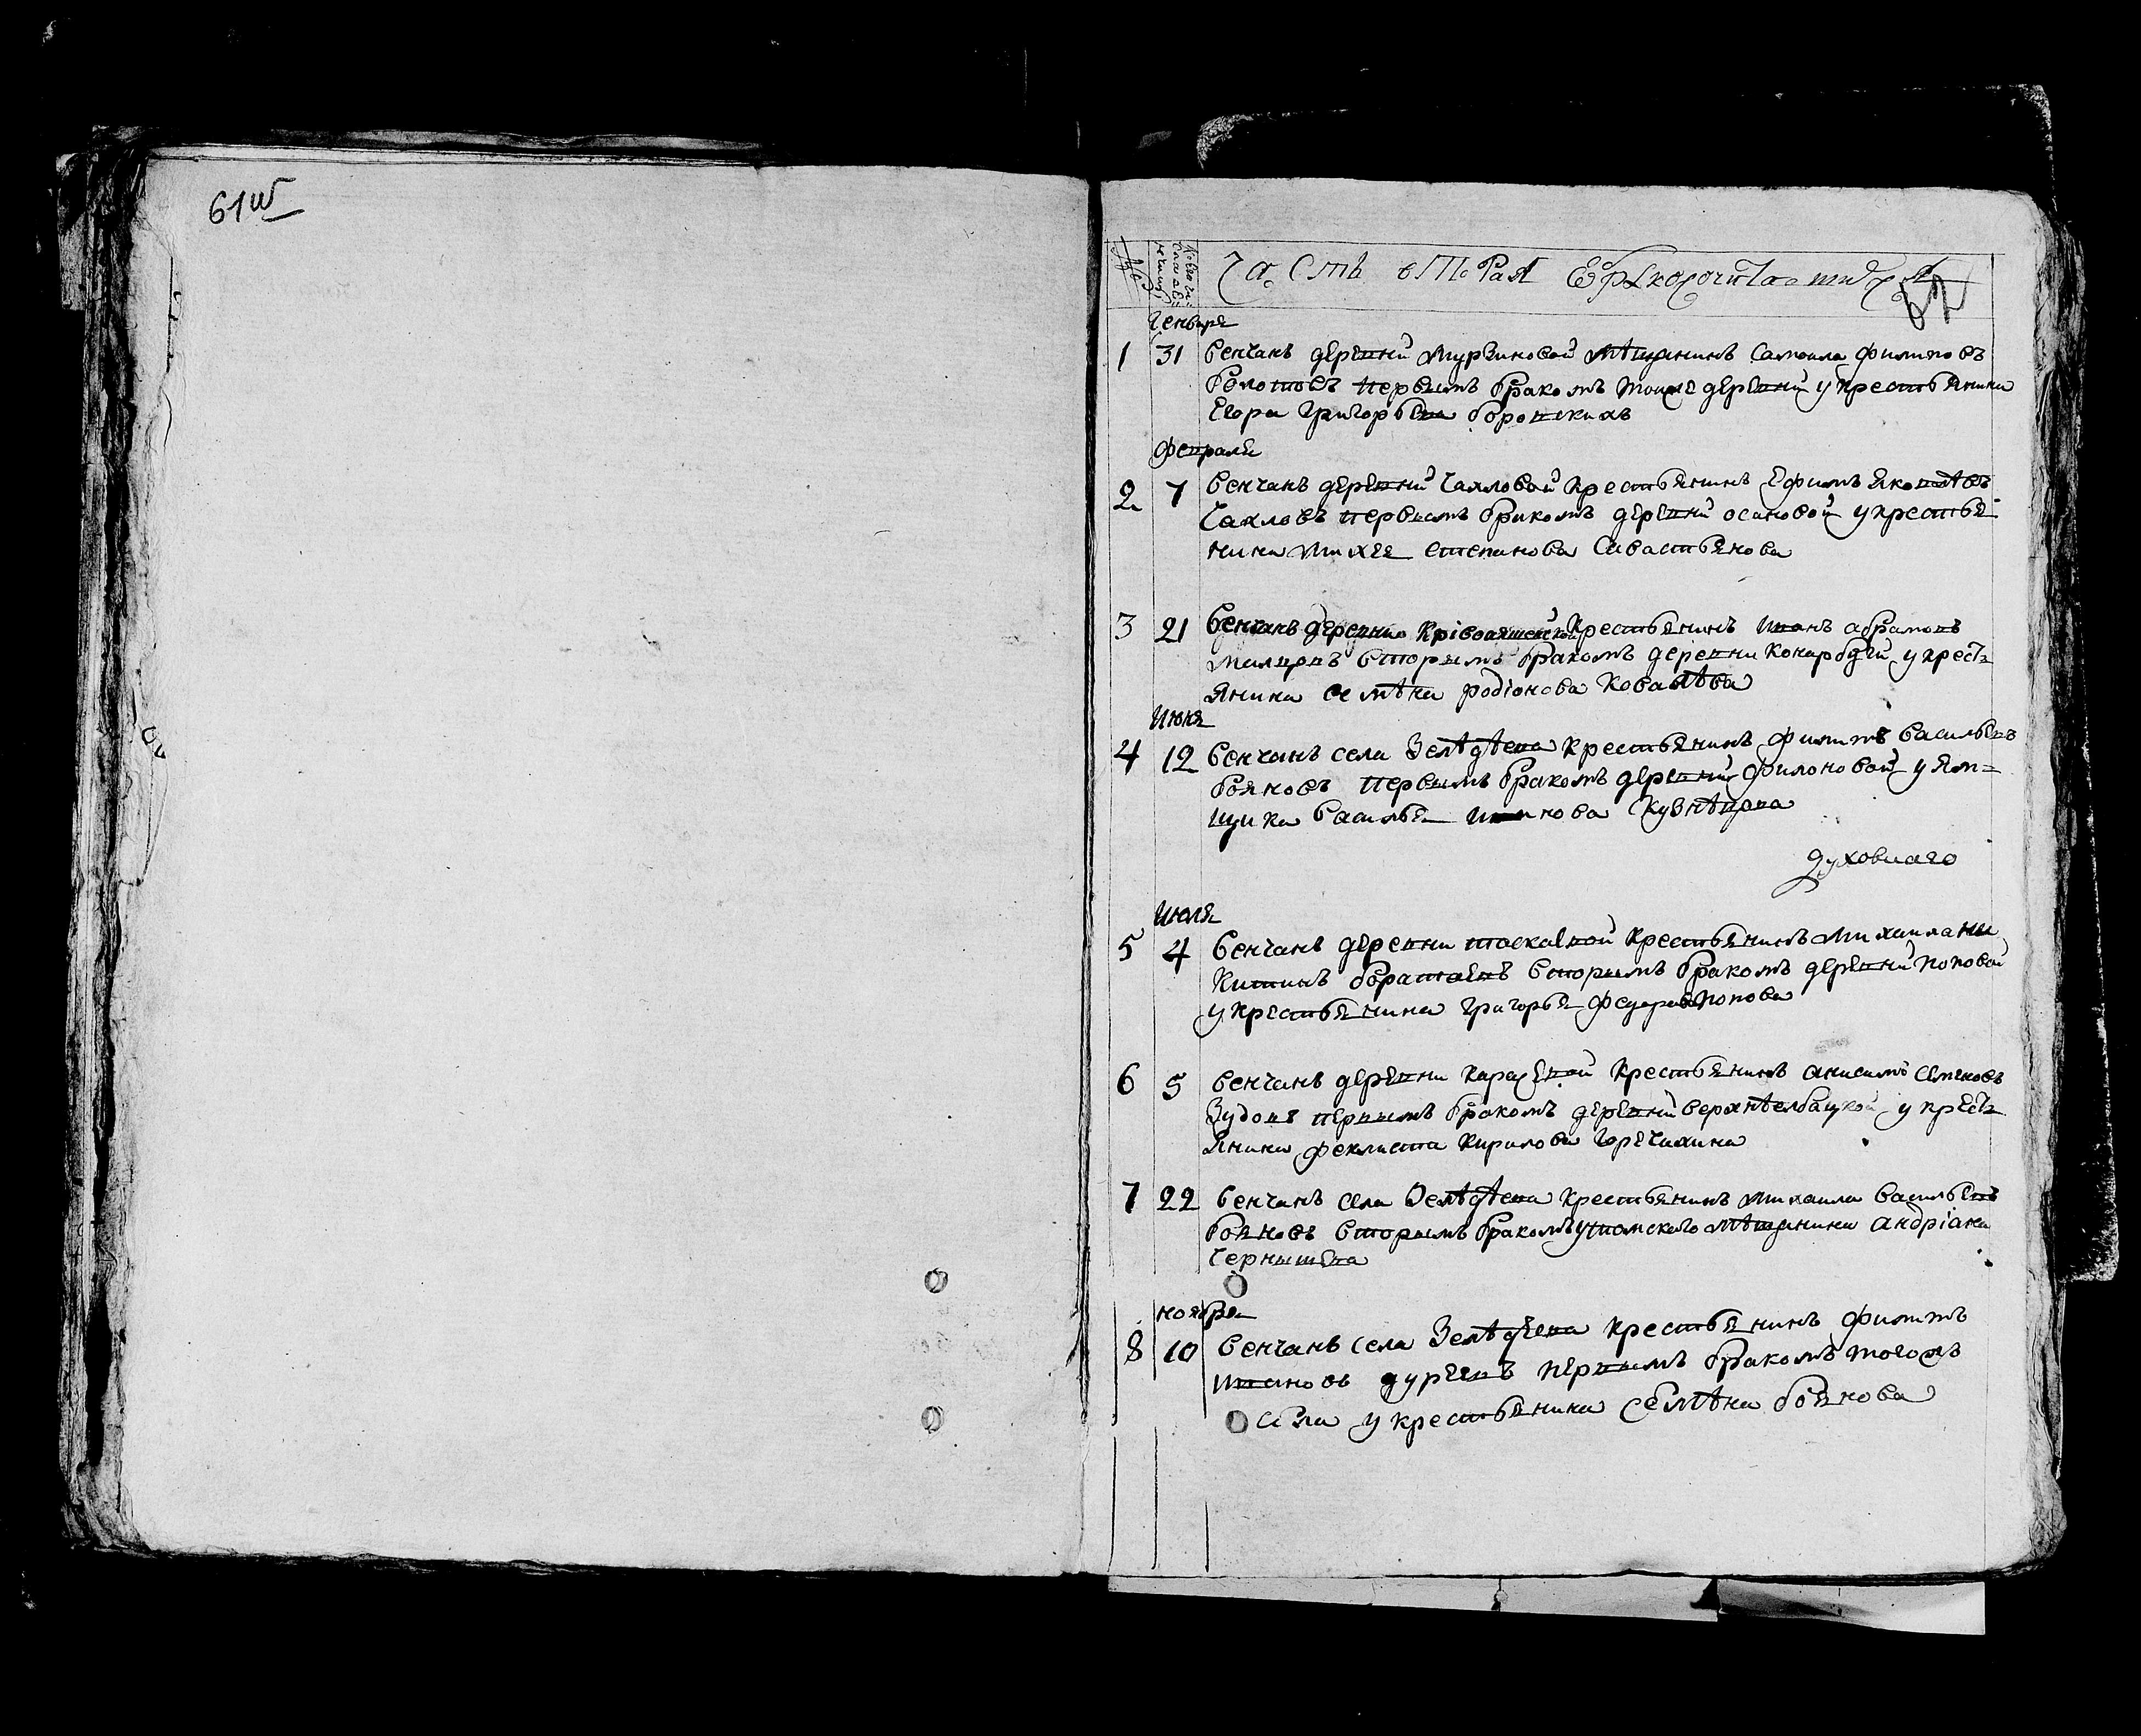 61 об
Часть вторая о бракосочитающихся
62
Генваря
1 31 венчанъ деревни Мурзиновой мѣщанинъ Самоила Филиповъ
Болотовъ первымъ бракомъ тоиже деревни у крестьянина
Егора Григорьева
Февраля
2 7 венчанъ деревни Чахловой крестьянинъ Ефимъ Яковлѣвъ
Чахловъ первымъ бракомъ деревни Осиновой у крестья
нина Михея Степанова Савастьянова
3 21 венчанъ деревни крестьянинъ Иванъ абрамовъ
вторымъ бракомъ деревни у крестъ
янина Семѣна родіонова Ковалѣва
Июня
4 12 венчанъ села Зелѣдѣева крестьянинъ Филипъ Васильевъ
бояновъ первымъ бракомъ деревни Филоновой у Ям=
щика Василья Иванова Кузнѣцова
духовнаго
Июля
5 4 венчанъ деревни Таскаевой крестьянинъ Михаила Ни
китинъ вторымъ бракомъ деревни поповой
у крестьянина Григорья Федорова Попова
6 5 венчанъ деревни крестьянинъ анисимъ Семеновъ
Зудовъ первымъ бракомъ деревни у кресть
янина феклиста Кирилова Горечахина
7 22 венчанъ Села Зелѣдѣева крестьянинъ Михаила Васильевъ
бояновъ вторымъ бракомъ у томского мѣщанина андріана
Чернышева
ноября
8 10 венчанъ села Зелѣдѣева крестьянинъ Филипъ
Ивановъ дуреевъ первымъ бракомъ тогожъ
села у крестьянина Семѣна боянова